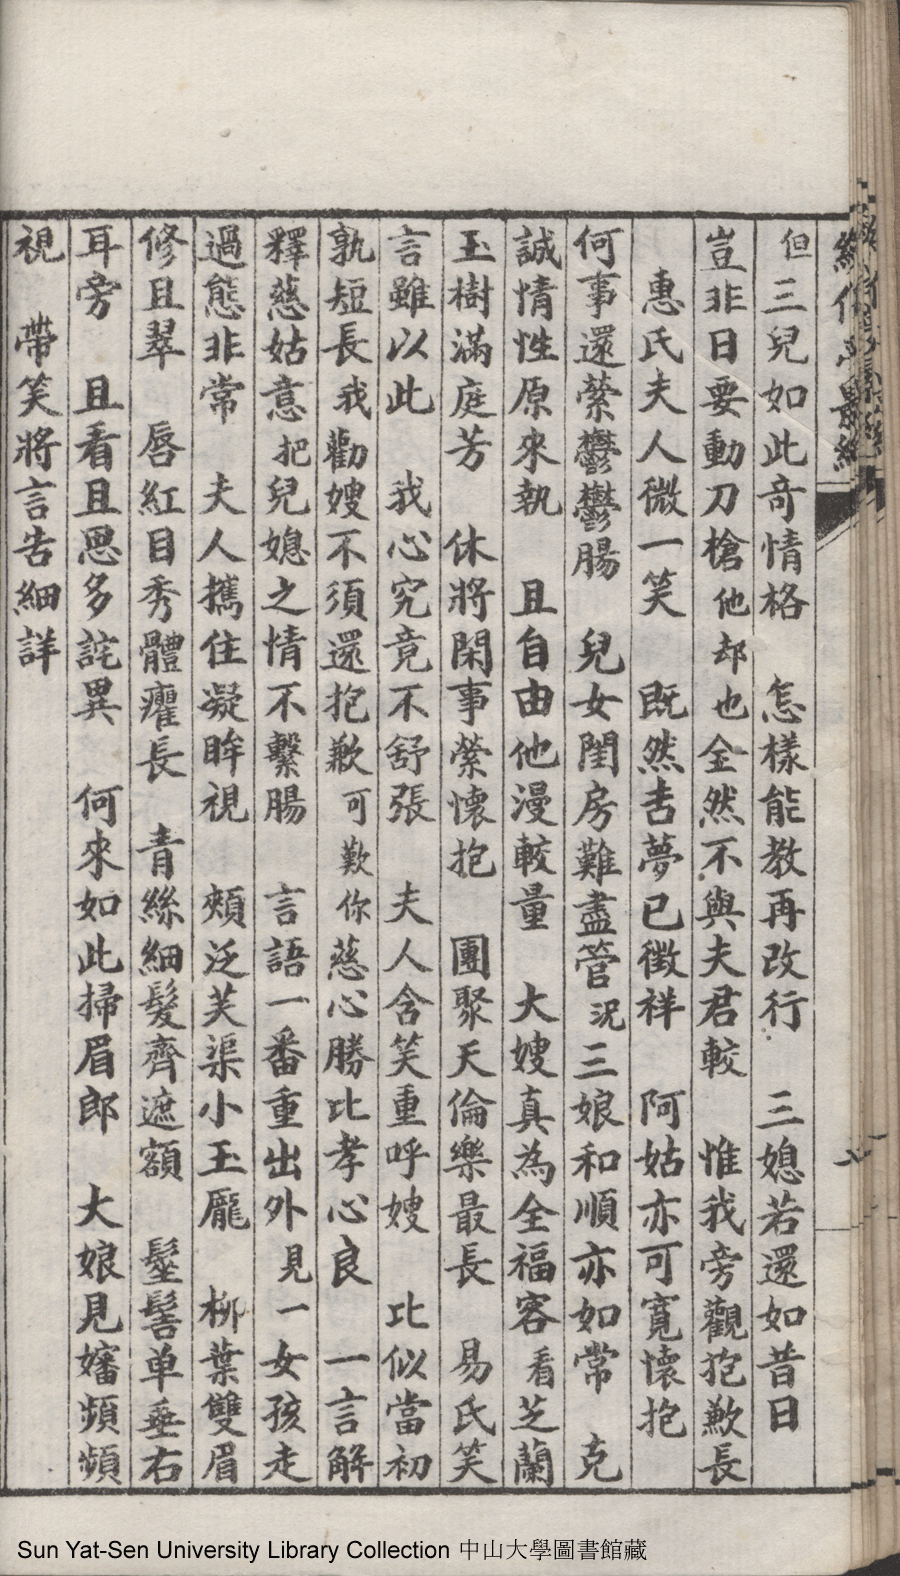 但三兒如此奇情格　怎樣能教再改行　三媳若還如昔日
豈非日要動刀槍他却也全然不與夫君較　惟我旁觀抱歉長
惠氏夫人微一笑　既然吉夢已徵祥　阿姑亦可寬懷抱
何事還縈鬱鬱腸　兒女閨房難盡管况三娘和順亦如常　克
誠情性原來執　且自由他漫較量　大嫂真為全福容看芝蘭
玉樹滿庭芳　休將閑事縈懷抱　團聚天倫樂最長　易氏笑
言雖以此　我心究竟不舒張　夫人含笑重呼嫂　比似當初
孰短長我勸嫂不須還抱歉可歎你慈心勝比孝心良　一言解
釋慈姑意把兒媳之情不繫腸　言語一番重出外見一女孩走
過態非常　夫人攜住凝眸視　頰泛芙渠小玉龎　柳葉雙眉
修且翠　唇紅目秀體癯長　青絲細髮齊遮額　髽髻单垂右
耳旁　且看且思多詫異　何來如此掃眉郎　大娘見嬸頻頻
視　帶笑將言告細詳
Sun Yat-Sen University Library Collection 中山大學圖書館藏